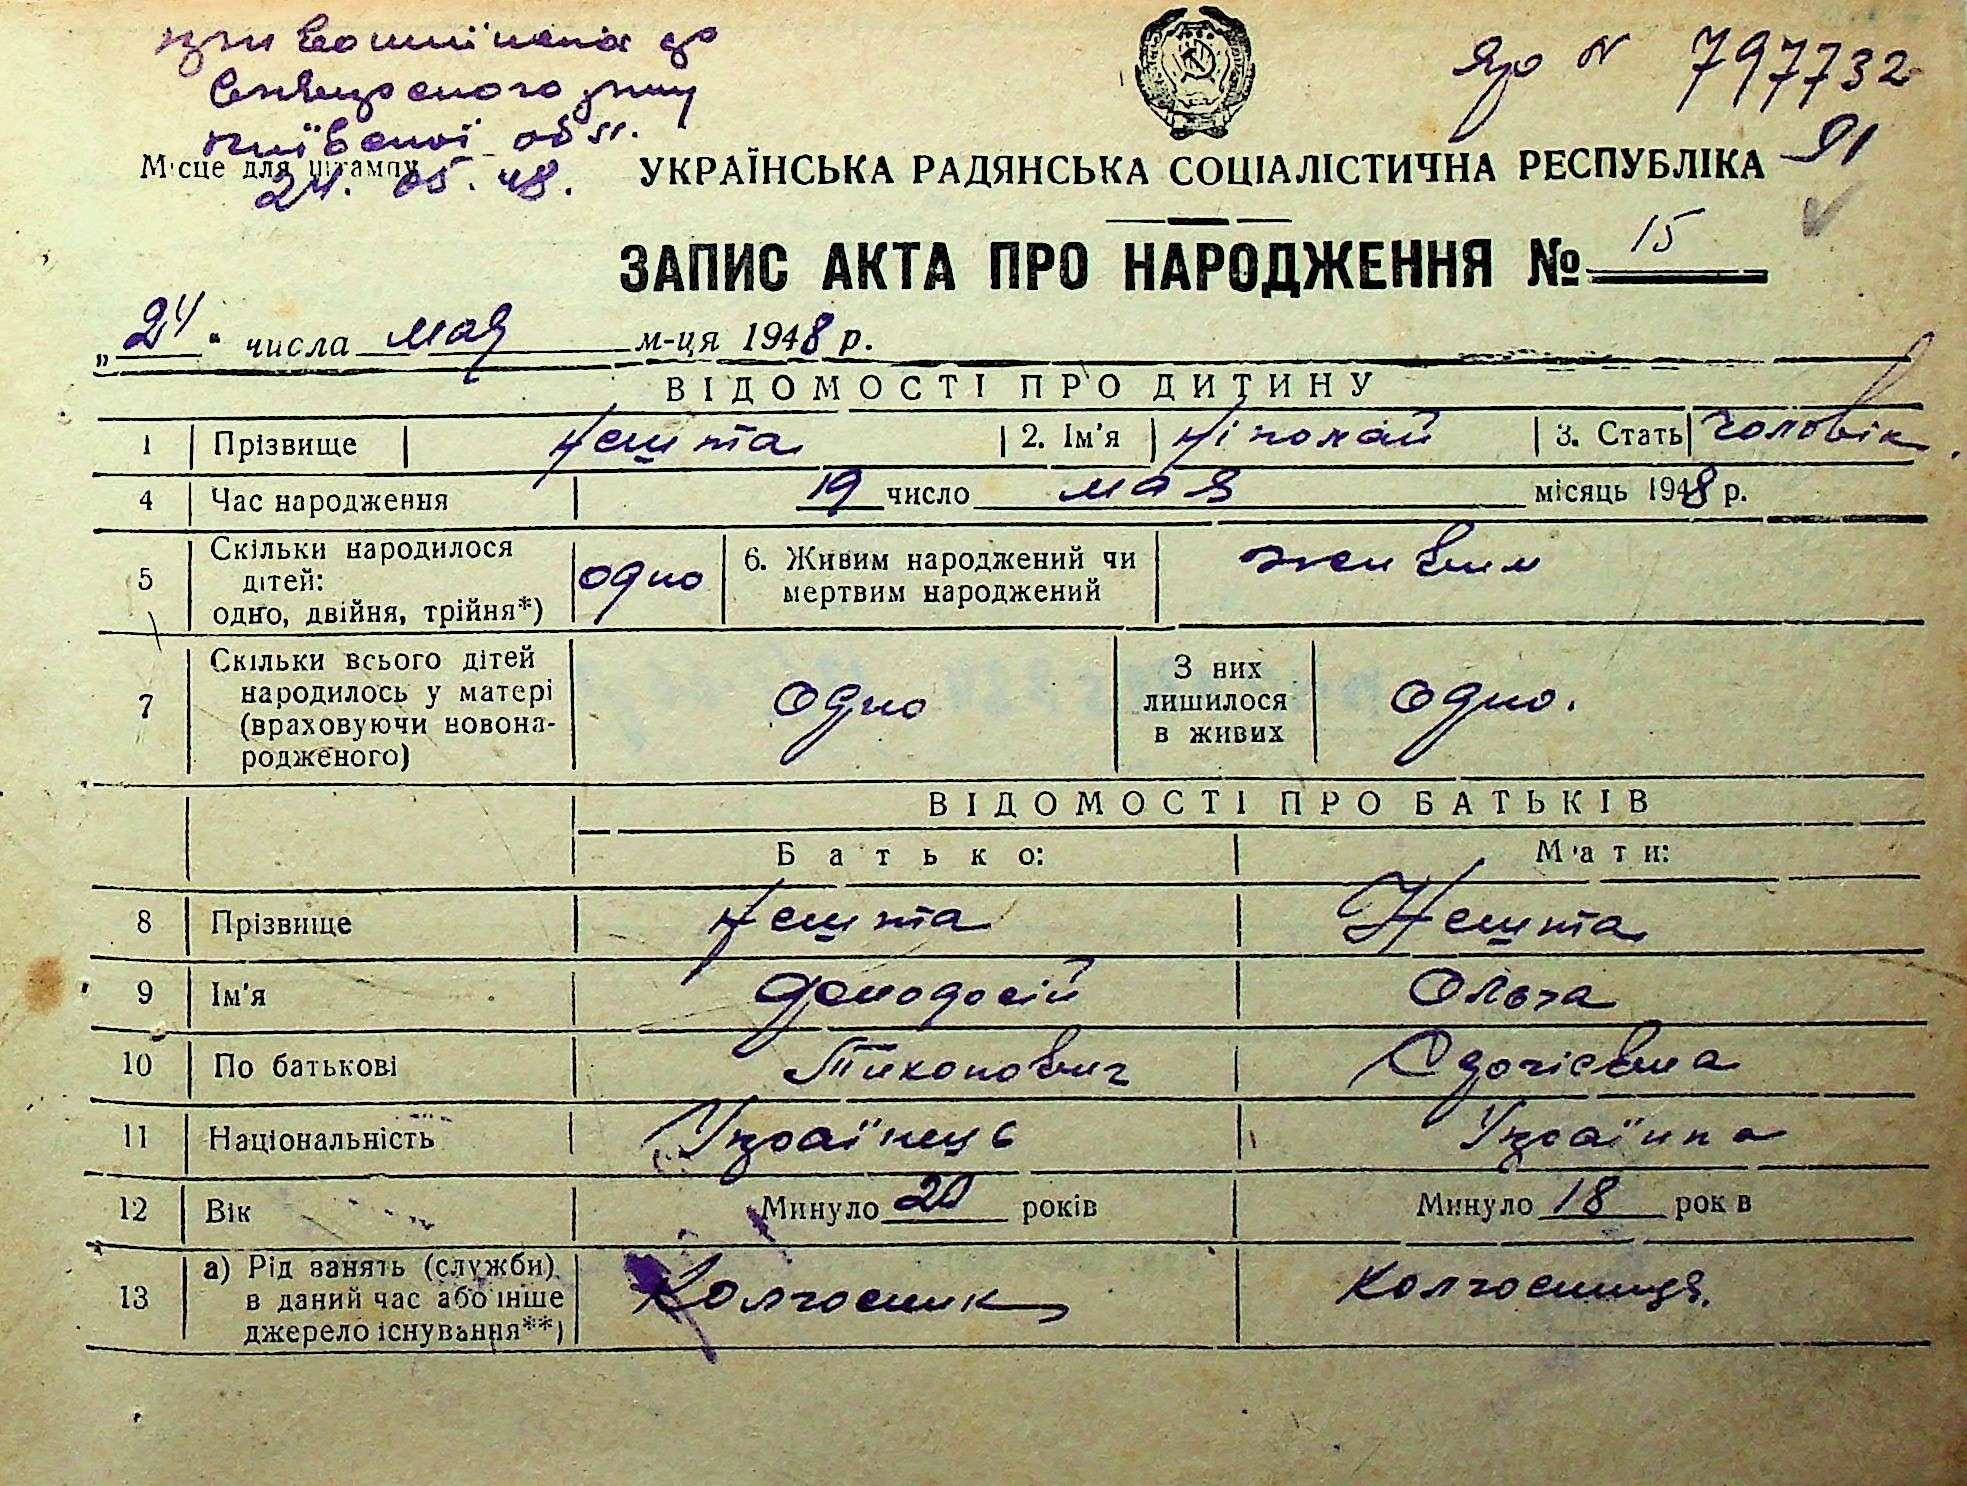 Київської обл.
24. 05. 48.
Місце для штампу
№ 797732
91
УКРАЇНСЬКА РАДЯНСЬКА СОЦІАЛІСТИЧНА РЕСПУБЛІКА
ЗАПИС АКТА ПРО НАРОДЖЕННЯ № 15
„24“ числа мая м-ця 1948 р.
ВІДОМОСТІ ПРО ДИТИНУ
1 Прізвище Нешта 2. Ім'я Ніколай 3. Стать чоловік.
4 Час народження 19 число мая місяць 1948 р.
5 Скільки народилося дітей: одно, двійня, трійня*) одно 6. Живим народжений чи мертвим народжений живим
7 Скільки всього дітей народилось у матері (враховуючи новонародженого) одно З них лишилося в живих одно.
ВІДОМОСТІ ПРО БАТЬКІВ
Батько: Мати:
8 Прізвище Нешта Нешта
9 Ім'я Феодосій Ольга
10 По батькові Тихонович
11 Національність Українець Українка
12 Вік Минуло 20 років Минуло 18 років
13 а) Рід занять (служби) в даний час або інше джерело існування**) Колгосник Колгосниця.